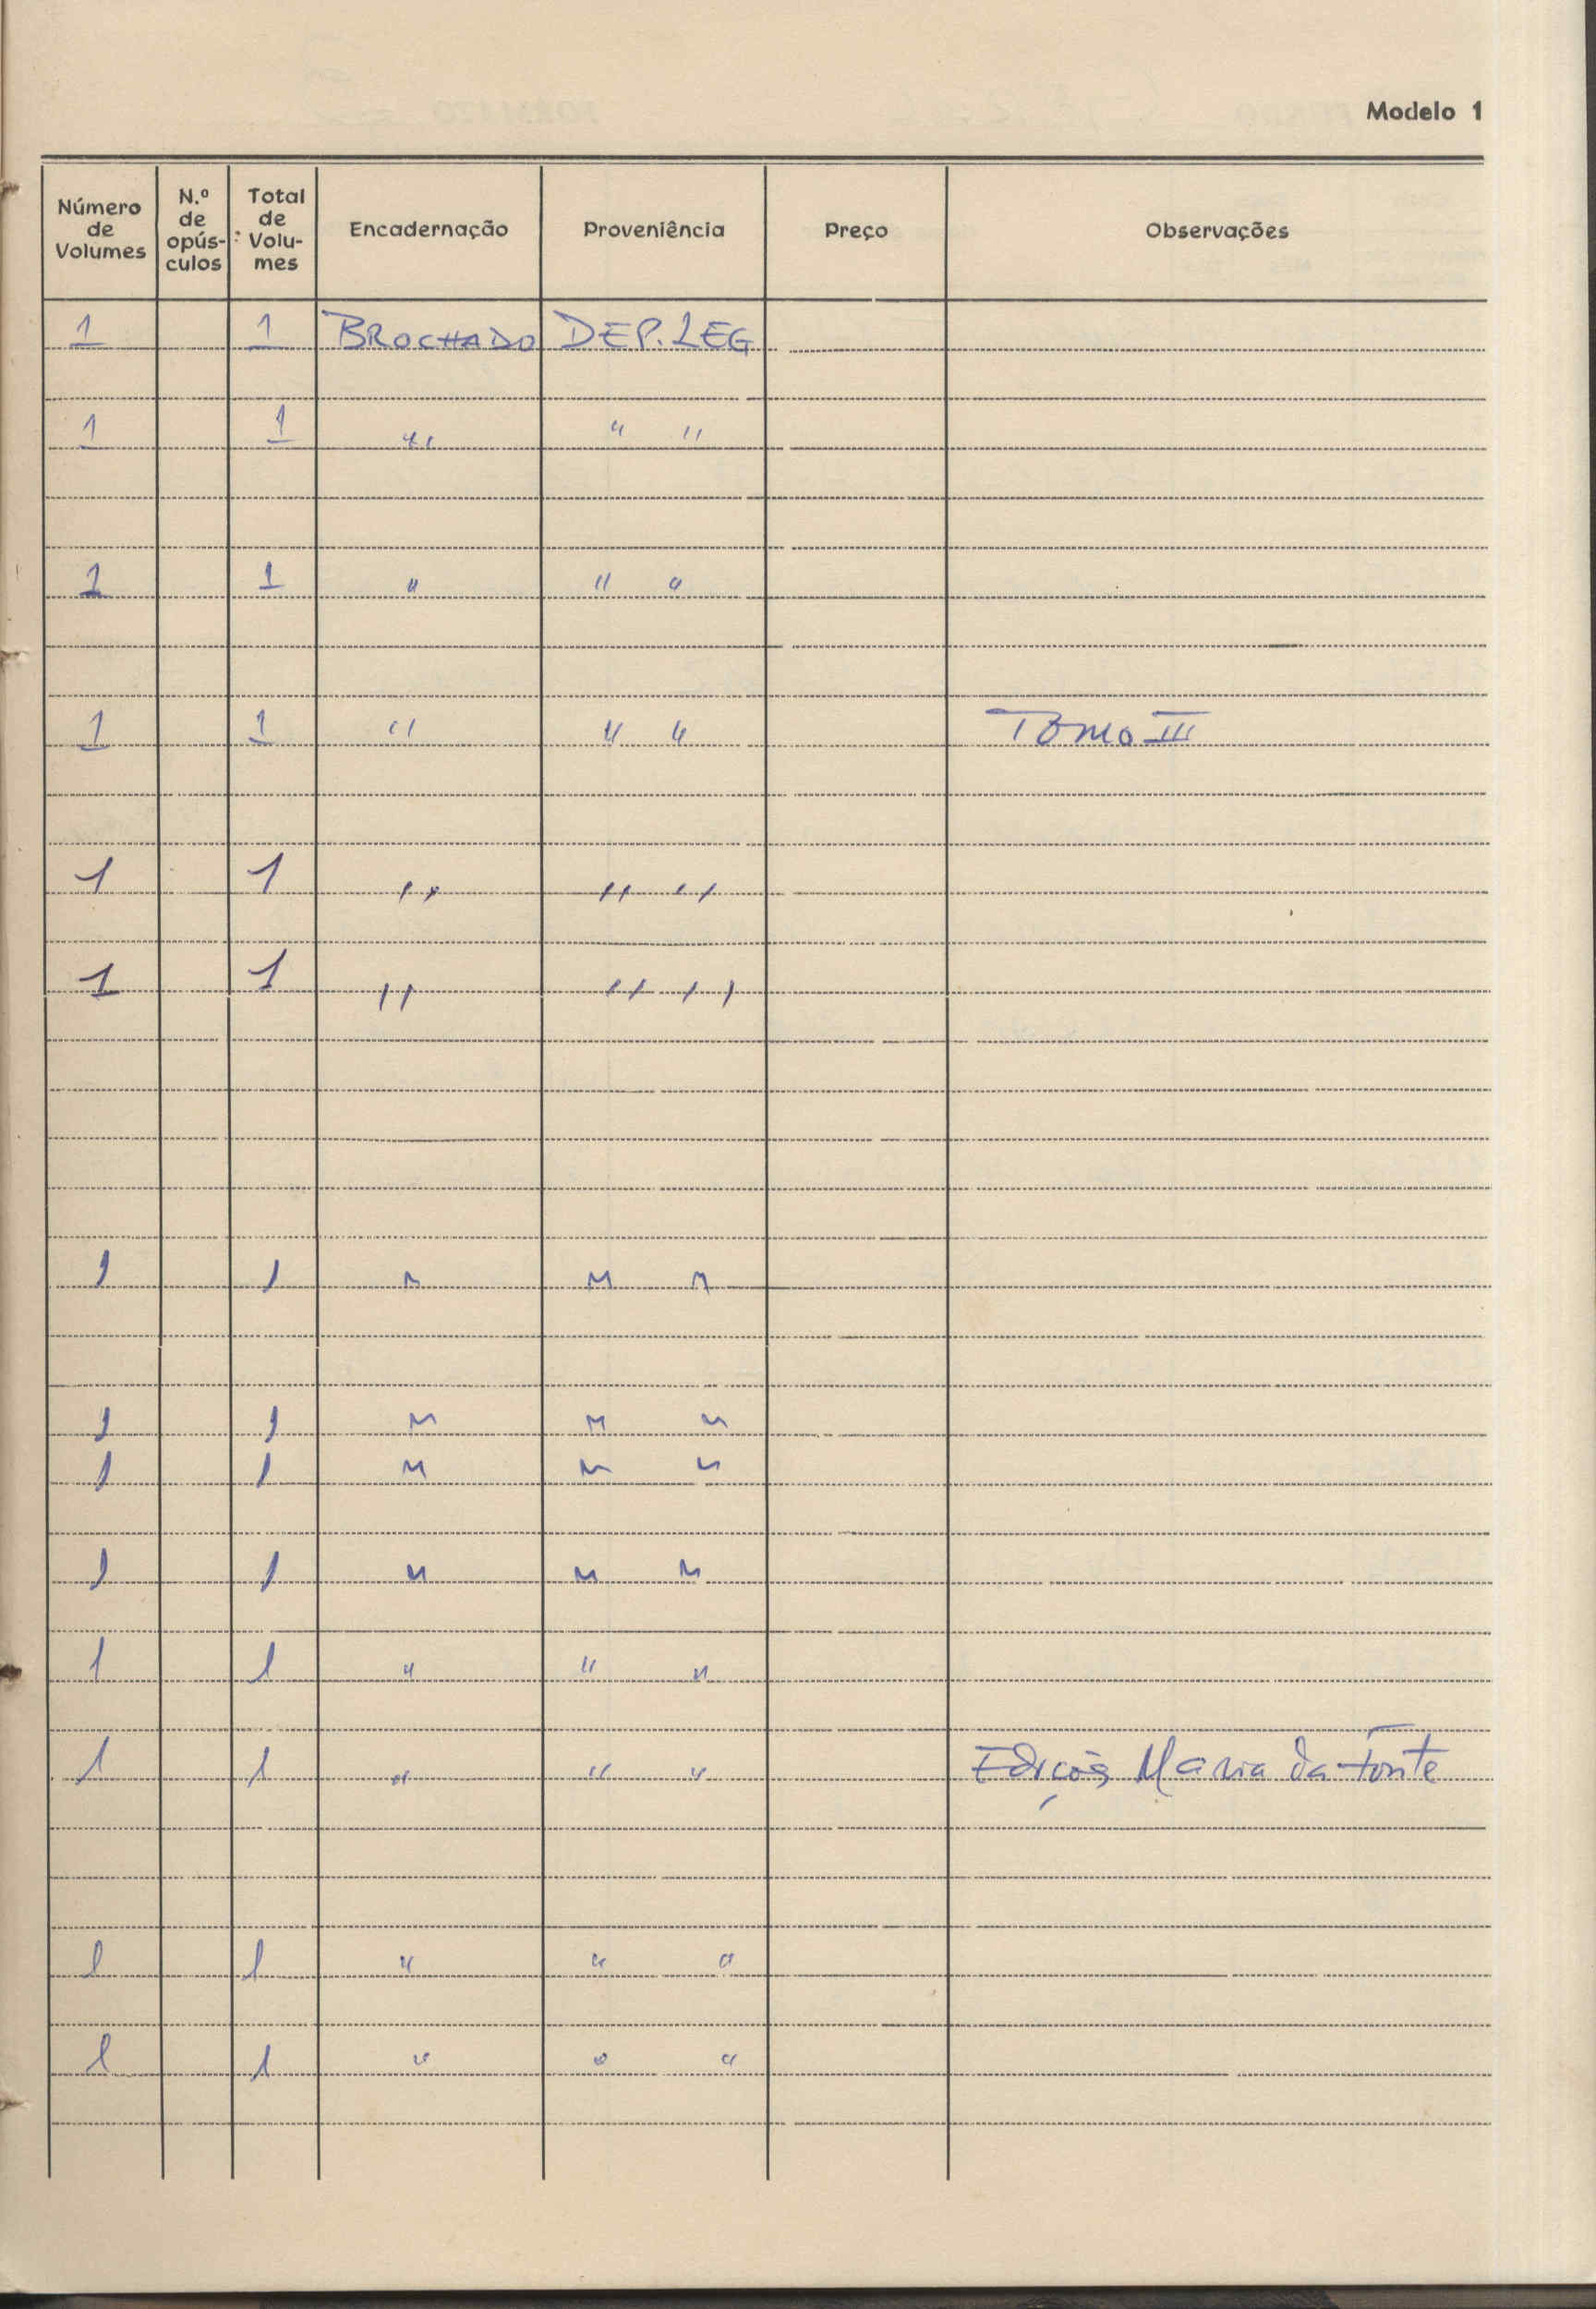 Modelo 1
Número de Volumes N.º de opús-culos Total de Volu-mes Encadernação Proveniência Preço Observações
1 1 BROCHADO DEP. LEG
1 1 " " "
1 1 " " "
1 1 " " " TOMO III
1 1 " " "
1 1 " " "
1 1 " " "
1 1 " " "
1 1 " " "
1 1 " " "
1 1 " " "
1 1 " " " Edições Maria da Fonte
1 1 " " "
1 1 " " "